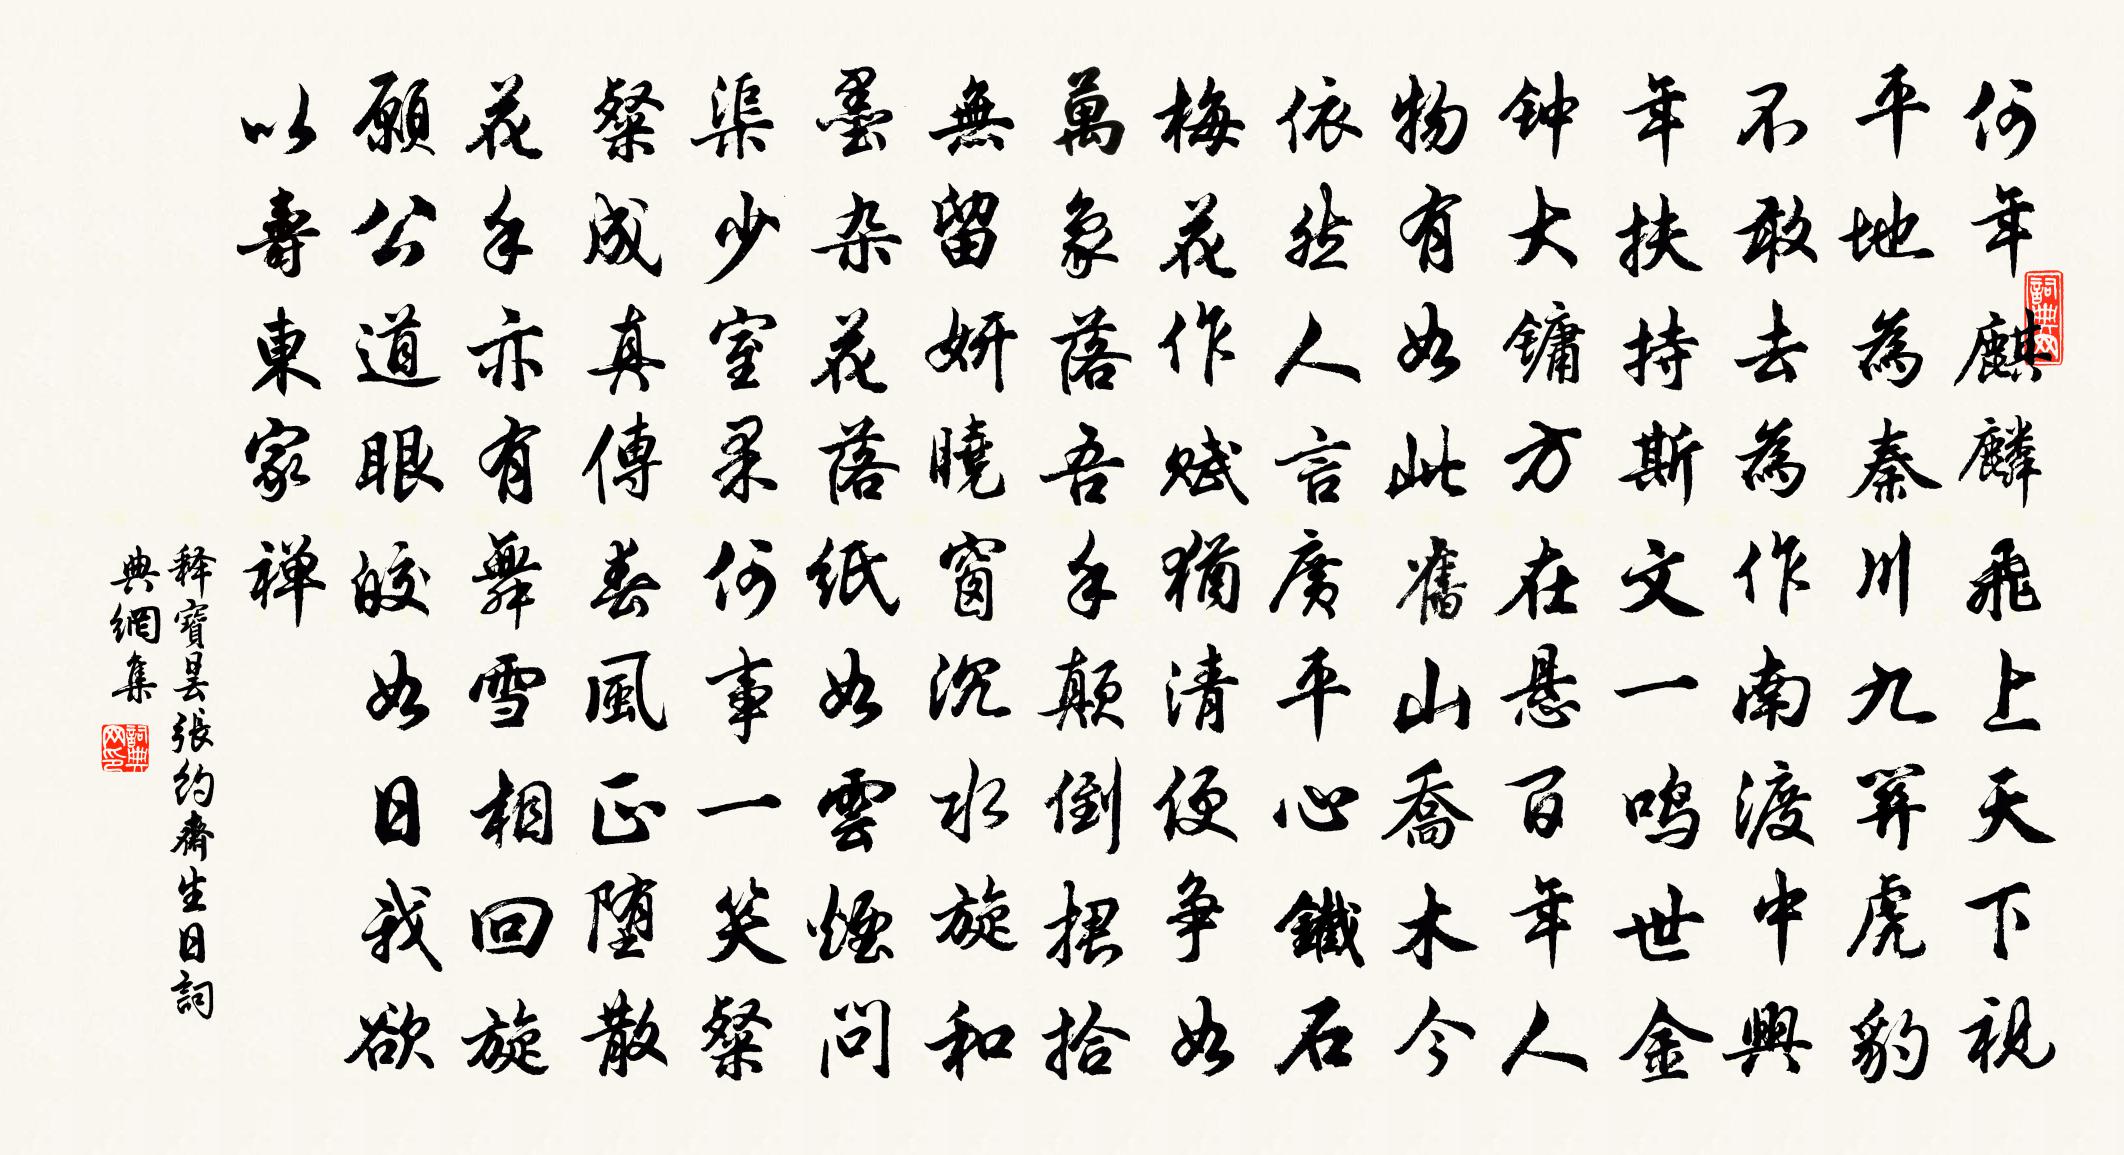 何年麒麟飛上天下視
平地為秦川九關虎豹
不敢去為作南渡中興
年扶持斯文一鸣世金
钟大鏞方在悬百年人
物有如此舊山喬木今
依然人言廣平心鐵石
梅花作赋猶清便争如
萬象落吾手颠倒捃拾
無留妍曉窗沉水旋和
墨杂花落纸如雲煙问
渠少室果何事一笑粲
粲成真傳春風正堕散
花手亦有舞雪相回旋
願公道眼皎如日我欲
以壽東家禅
释寶昙張约齋生日詞
典網集
詞典网
詞典网印